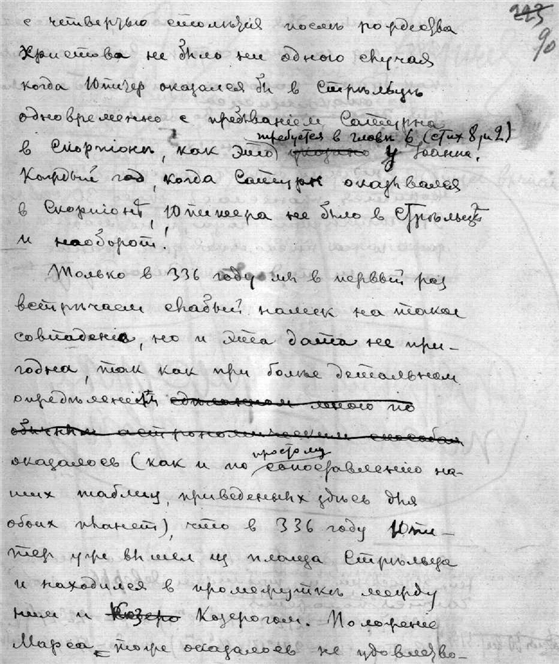 223
90
с четвертью столѣтія послѣ рождества
Христова не было ни одного случая
когда Юпитер оказался бы в Стрѣльцѣ
одновременно с пребываніем Сатурна
требуется в главѣ 6 (стих 8 и 2)
в Скорпіонѣ, как это указано у Іоанна.
Каждый год, когда Сатурн оказывался
в Скорпіонѣ, Юпитера не было в Стрѣльцѣ
и наоборот!
Только в 336 году мы в первый раз
встрѣчаем слабый намек на такое
совпаденіе, но и эта дата не при-
годна, так как при болѣе детальном
опредѣленіи
обычным астрономическим способом
простому
оказалось (как и по сопоставленію на-
ших таблиц, приведенных здѣсь для
обоих планет), что в 336 году Юпи-
тер уже вышел из-под Стрѣльца
и находился в промежуткѣ между
ним и Козеро Козерогом. Положеніе
Марса тоже оказалось не удовлетво-